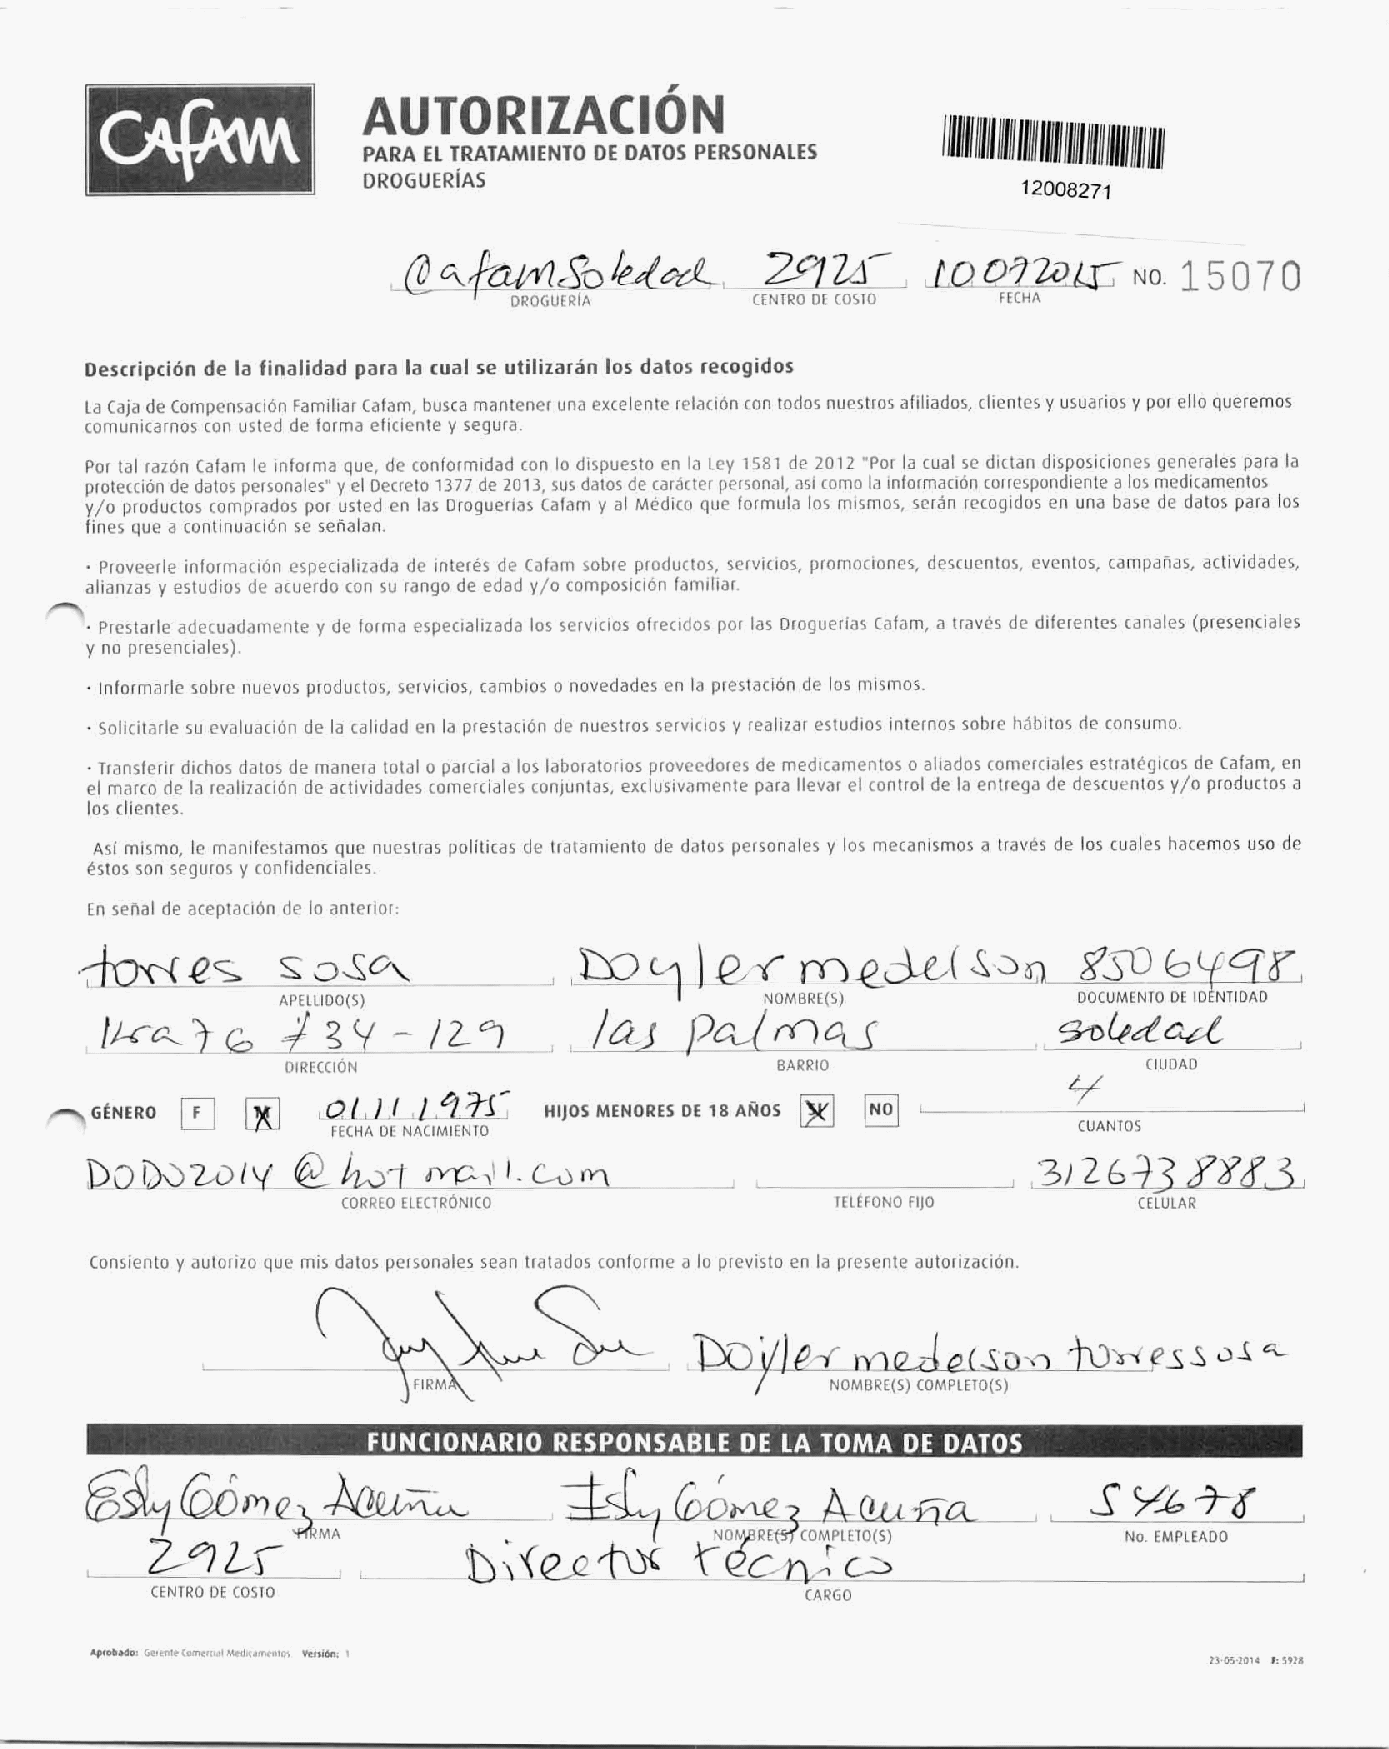 CAFAM
AUTORIZACIÓN
PARA EL TRATAMIENTO DE DATOS PERSONALES
DROGUERÍAS
12008271
Cafam Soledad 2925 10072015 NO. 15070
DROGUERÍA CENTRO DE COSTO FECHA
Descripción de la finalidad para la cual se utilizarán los datos recogidos
La Caja de Compensación Familiar Cafam, busca mantener una excelente relación con todos nuestros afiliados, clientes y usuarios y por ello queremos
comunicarnos con usted de forma eficiente y segura.
Por tal razón Cafam le informa que, de conformidad con lo dispuesto en la Ley 1581 de 2012 "Por la cual se dictan disposiciones generales para la
protección de datos personales" y el Decreto 1377 de 2013, sus datos de carácter personal, así como la información correspondiente a los medicamentos
y/o productos comprados por usted en las Droguerías Cafam y al Médico que formula los mismos, serán recogidos en una base de datos para los
fines que a continuación se señalan.
· Proveerle información especializada de interés de Cafam sobre productos, servicios, promociones, descuentos, eventos, campañas, actividades,
alianzas y estudios de acuerdo con su rango de edad y/o composición familiar.
· Prestarle adecuadamente y de forma especializada los servicios ofrecidos por las Droguerías Cafam, a través de diferentes canales (presenciales
y no presenciales).
· Informarle sobre nuevos productos, servicios, cambios o novedades en la prestación de los mismos.
· Solicitarle su evaluación de la calidad en la prestación de nuestros servicios y realizar estudios internos sobre hábitos de consumo.
· Transferir dichos datos de manera total o parcial a los laboratorios proveedores de medicamentos o aliados comerciales estratégicos de Cafam, en
el marco de la realización de actividades comerciales conjuntas, exclusivamente para llevar el control de la entrega de descuentos y/o productos a
los clientes.
Así mismo, le manifestamos que nuestras políticas de tratamiento de datos personales y los mecanismos a través de los cuales hacemos uso de
éstos son seguros y confidenciales.
En señal de aceptación de lo anterior:
torres sosa Doyler medelson 8506498
APELLIDO(S) NOMBRE(S) DOCUMENTO DE IDENTIDAD
Kra 7G # 34-129 las palmas soledad
DIRECCIÓN BARRIO CIUDAD
GÉNERO F X 01111975 HIJOS MENORES DE 18 AÑOS X NO 4
FECHA DE NACIMIENTO CUANTOS
DODO2014@hotmail.com 3126738883
CORREO ELECTRÓNICO TELÉFONO FIJO CELULAR
Consiento y autorizo que mis datos personales sean tratados conforme a lo previsto en la presente autorización.
Doyler medelson torres sosa
FIRMA NOMBRE(S) COMPLETO(S)
FUNCIONARIO RESPONSABLE DE LA TOMA DE DATOS
Esly Gómez Acuña Esly Gómez Acuña 54678
FIRMA NOMBRE(S) COMPLETO(S) No. EMPLEADO
2925 Director técnico
CENTRO DE COSTO CARGO
Aprobado: Gerente Comercial Medicamentos Versión: 1
23-05-2014 J: 5928